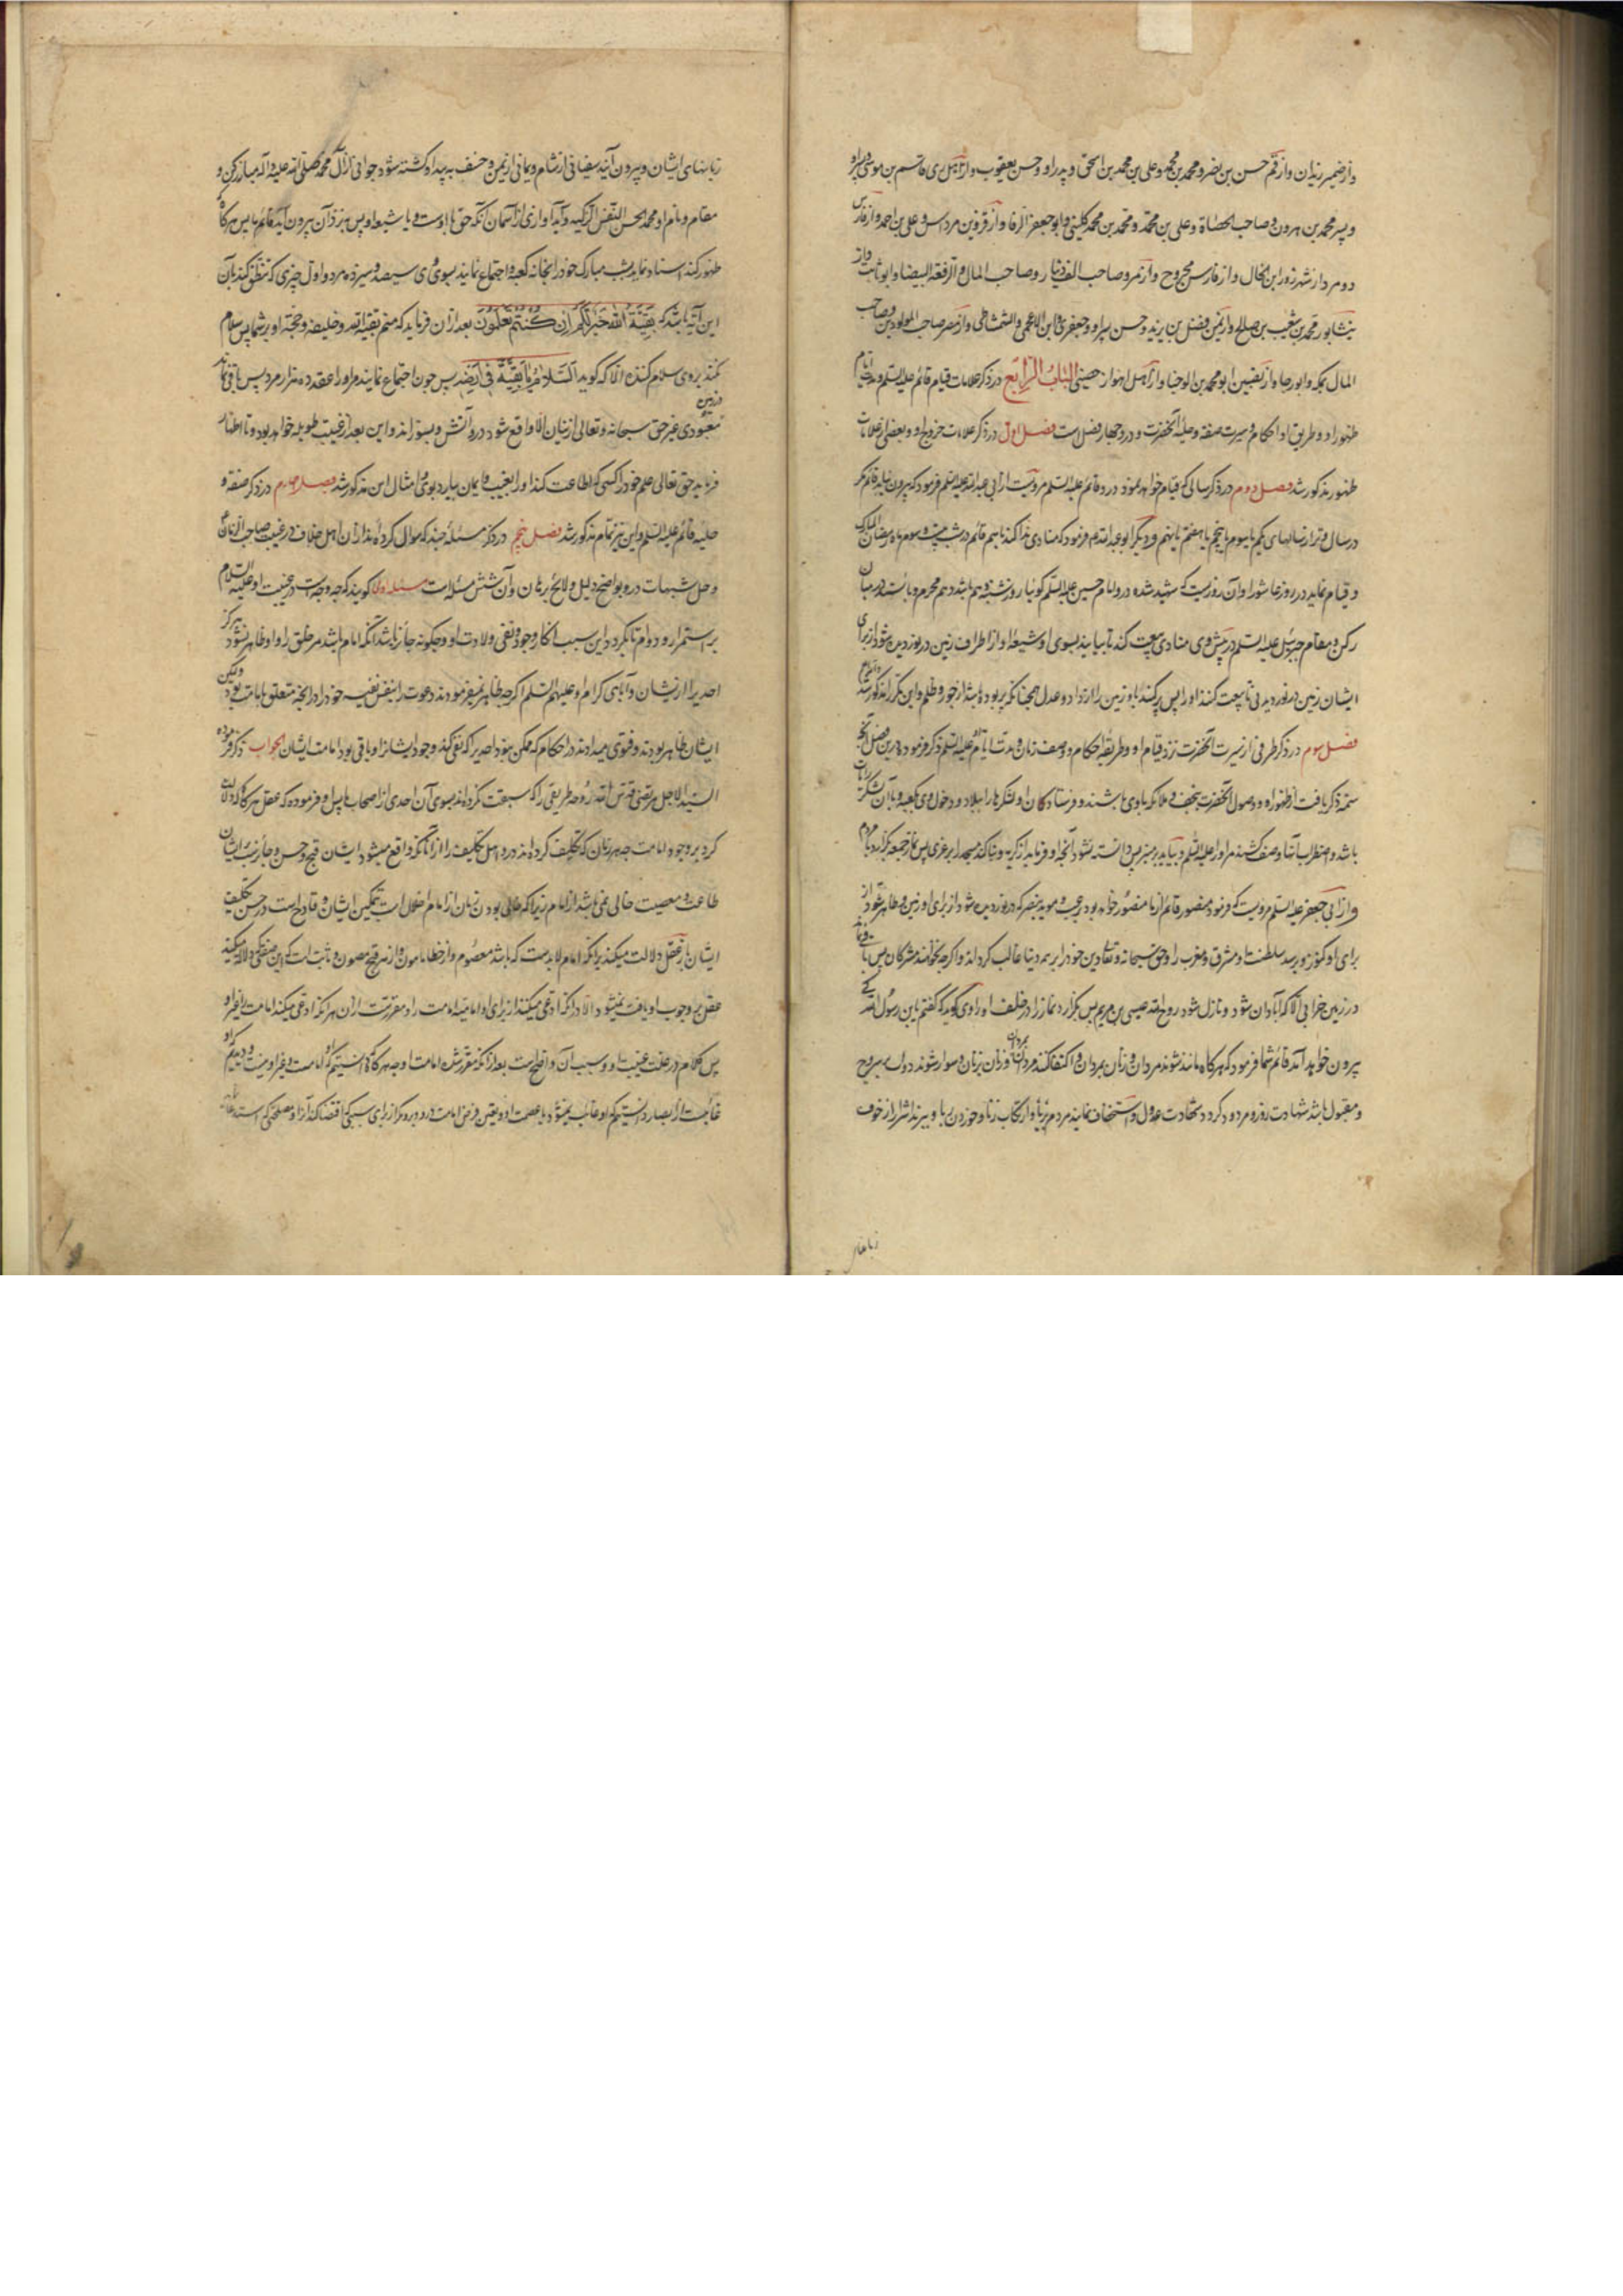 واز ضمیر زیدان واز قم حسن بن نضر و محمد بن محمد و علی بن محمد بن اسحق و پدر او و حسن یعقوب واز اهل ری قاسم بن موسی و پسر او
و پسر محمد بن هرون و صاحب الحصاة و علی بن محمد و محمد بن محمد کلینی و ابو جعفر الرفا واز قزوین مرداس و علی بن احمد واز فارس
دو مرد از شهرزور ابن الخال واز فارس مجروح واز مرو صاحب الف دینار و صاحب المال و الرقعة البیضا و ابو ثابت واز
نیشابور محمد بن شعیب بن صالح واز یمن فضل بن یزید و حسن پسر او و جعفری و ابن الاعجمی و الشمشاطی واز مصر صاحب المولودین و صاحب
المال بمکه و ابو رجا واز نصیبین ابو محمد بن الوجنا واز اهل اهواز حصینی الباب الرابع در ذکر علامات قیام قائم علیه السلم و مدت ایام
ظهور او و طریق او احکام و سیرت صفة و حلیهٔ آنحضرت و درو چهار فصل است فصل اول در ذکر علامات خروج او و بعضی از علامات
ظهور مذکور شد فصل دوم در ذکر سالی که قیام خواهد نمود درو قائم علیه السلم مرویست از ابی عبد الله علیه السلم فرمود که بیرون نیاید قائم مگر
در سال وتر از سالهای یکم یا سیوم یا پنجم یا هفتم یا نهم و دیگر ابو عبد الله فرمود که منادی ندا کند باسم قائم در شب بیست و سوم ماه رمضان المبارک
و قیام نماید در روز عاشورا و آن روزیست که شهید شده درو امام حسین علیه السلم گوئیا روز شنبه هم باشد دهم محرم و بایستد در میان
رکن و مقام جبرئیل علیه السلم در پیش وی منادی بیعت کند تا بیایند بسوی او شیعهٔ او از اطراف زمین در نوردیده شود از برای
ایشان زمین در نوردیدنی تا بیعت کنند او را پس پر کند باو زمین را از داد و عدل همچنانکه پر بوده باشد از جور و ظلم و این مکرر مذکور شد
فصل سوم در ذکر طرفی از سیرت آنحضرت نزد قیام او و طریقهٔ احکام و وصف زمان و مدت ایام او علیه السلم ذکر فرموده درین فصل آنچه
سمة ذکر یافت از ظهور او و وصول آنحضرت بنجف و ملائکه باوی باشند و فرستادگان او لشکرها را ببلاد و دخول وی بکوفه و با آن لشکر رایات
باشد و اضطراب آنها و صف کشند مر او را علیه السلم و بیاید بر منبر پس دانسته نشود آنچه او فرماید از گریه و بنا کند مسجد را بر غری پس نماز جمعه بگزارد با مردم
واز ابی جعفر علیه السلم مرویست که فرمود منصور قائم از ما منصور خواهد بود برعب و موید بنصر که در نوردیده شود از برای او زمین و ظاهر شود از
برای او کنوز و برسد سلطنت او مشرق و مغرب را و حق سبحانه و تعالی دین خود را بر همه دینها غالب گرداند و اگرچه نخواهند مشرکان پس باقی نماند
در زمین خرابی الا که آبادان شود و نازل شود روح الله عیسی بن مریم پس بگزارد نماز را در خلف او راوی گوید که گفتم یا بن رسول الله کی
بیرون خواهد آمد قائم شما فرمود که هرگاه مانند شوند مردان و زنان بمردان و اکتفا کنند مردان بمردان و زنان بزنان و سوار شوند ذوات بسروج
و مقبول باشد شهادت زور و مردود گردد شهادت عدول و استخفاف نمایند مردم بزنا و ارتکاب زنا و خوردن ربا و بپرهیزند اشرار از خوف
زبانهای
زبانهای ایشان و بیرون آیند سفیانی از شام و یمانی از یمن و خسف به بیدا و کشته شود جوانی از آل محمد صلی الله علیه و اله میان رکن و
مقام و نام او محمد الحسن النفس الزکیه و آید آوازی از آسمان آنکه حق با اوست و با شیعهٔ او پس نزد آن بیرون آید قائم ما پس هرگاه
ظهور کند اسناد نماید پشت مبارک خود را بخانه کعبه و اجتماع نمایند بسوی وی سیصد و سیزده مرد و اول چیزی که نطق کند بآن
این آیه باشد که بَقِیَّةُ اللّٰهِ خَیْرٌ لَکُمْ اِنْ کُنْتُمْ تَعْلَمُونَ بعد از آن فرماید که منم بقیة الله و خلیفه و حجة او بر شما پس سلام
نکند بر وی سلام کننده الا که گوید اَلسَّلامُ عَلَیْکَ یا بَقِیَّةَ اللّٰه فی اَرْضِه پس چون اجتماع نمایند مر او را عقد ده هزار مرد پس باقی نماند در زمین
معبودی غیر حق سبحانه و تعالی از بتان الا واقع شود درو آتش و بسوزاند و این بعد از غیبت طویله خواهد بود و تا اظهار
فرماید حق تعالی علم خود را کسی که اطاعت کند او را بغیب و ایمان بیارد بوی و امثال این مذکور شد فصل چهارم در ذکر صفة و
حلیه قائم علیه السلم و این نیز تمام مذکور شد فصل پنجم در ذکر مسئلهٔ چند که سوال کرده‌اند از آن اهل خلاف در غیبت صاحب الزمان
و حل شبهات درو بواضح دلیل و لایح برهان و آن شش مسئله است مسئله اولا گویند که چه وجه است در غیبت او علیه السلام
بر استمرار و دوام تا بگردد این سبب انکار وجود و نفی ولادت او و چگونه جائز باشد آنکه امام باشد مر خلق را و او ظاهر نشود هرگز
احدی را از ایشان و آبای کرام او علیهم السلم اگرچه ظاهر نمی‌فرمودند دعوت را بنفس نفیس خود را در آنچه متعلق بامامت بود ولیکن
ایشان ظاهر بودند و فتوی میدادند در احکام که ممکن نبود احدی را که نفی کند وجود ایشانرا و باقی بود امامت ایشان الجواب ذکر فرموده
السید الاجل مرتضی قدس الله روحه طریقی را که سبقت نکرده‌اند بسوی آن احدی از اصحاب ما پس او فرموده که عقل هرگاه دلالت
کرد بر وجود امامت چه هر زمان که تکلیف کرده‌اند درو اهل تکلیف را از آنانکه واقع میشود ایشان قبیح و حسن و جائزست بر ایشان
طاعت و معصیت خالی نمی‌باشد از امام زیرا که خالی بودن زمان از امام اخلال است بتمکین ایشان و قادح است در حسن تکلیف
ایشان باز عقل دلالت میکند بر آنکه امام لابدست که باشد معصوم و از خطا مامون و از هر قبیح مصون و ثابت است که این صفتی که دلالت میکند
عقل بر وجوب او یافت نمیشود الا در آنکه ادعی میکنند از برای او امامیه امامت را و معرّیست از آن هر آنکه ادعی میکنند امامت را غیر او
پس کلام در علت غیبت او و سبب آن واضح است بعد از آنکه مقرر شده امامت او چه هرگاه دانستیم که او امامست و غیر او نیست و دیدیم که او
غایبست از ابصار دانستیم که او غایب نمیشود با عصمت او و تعین فرض امامت درو و برو مگر از برای سببی که اقتضا کند آنرا و مصلحتی که استدعا